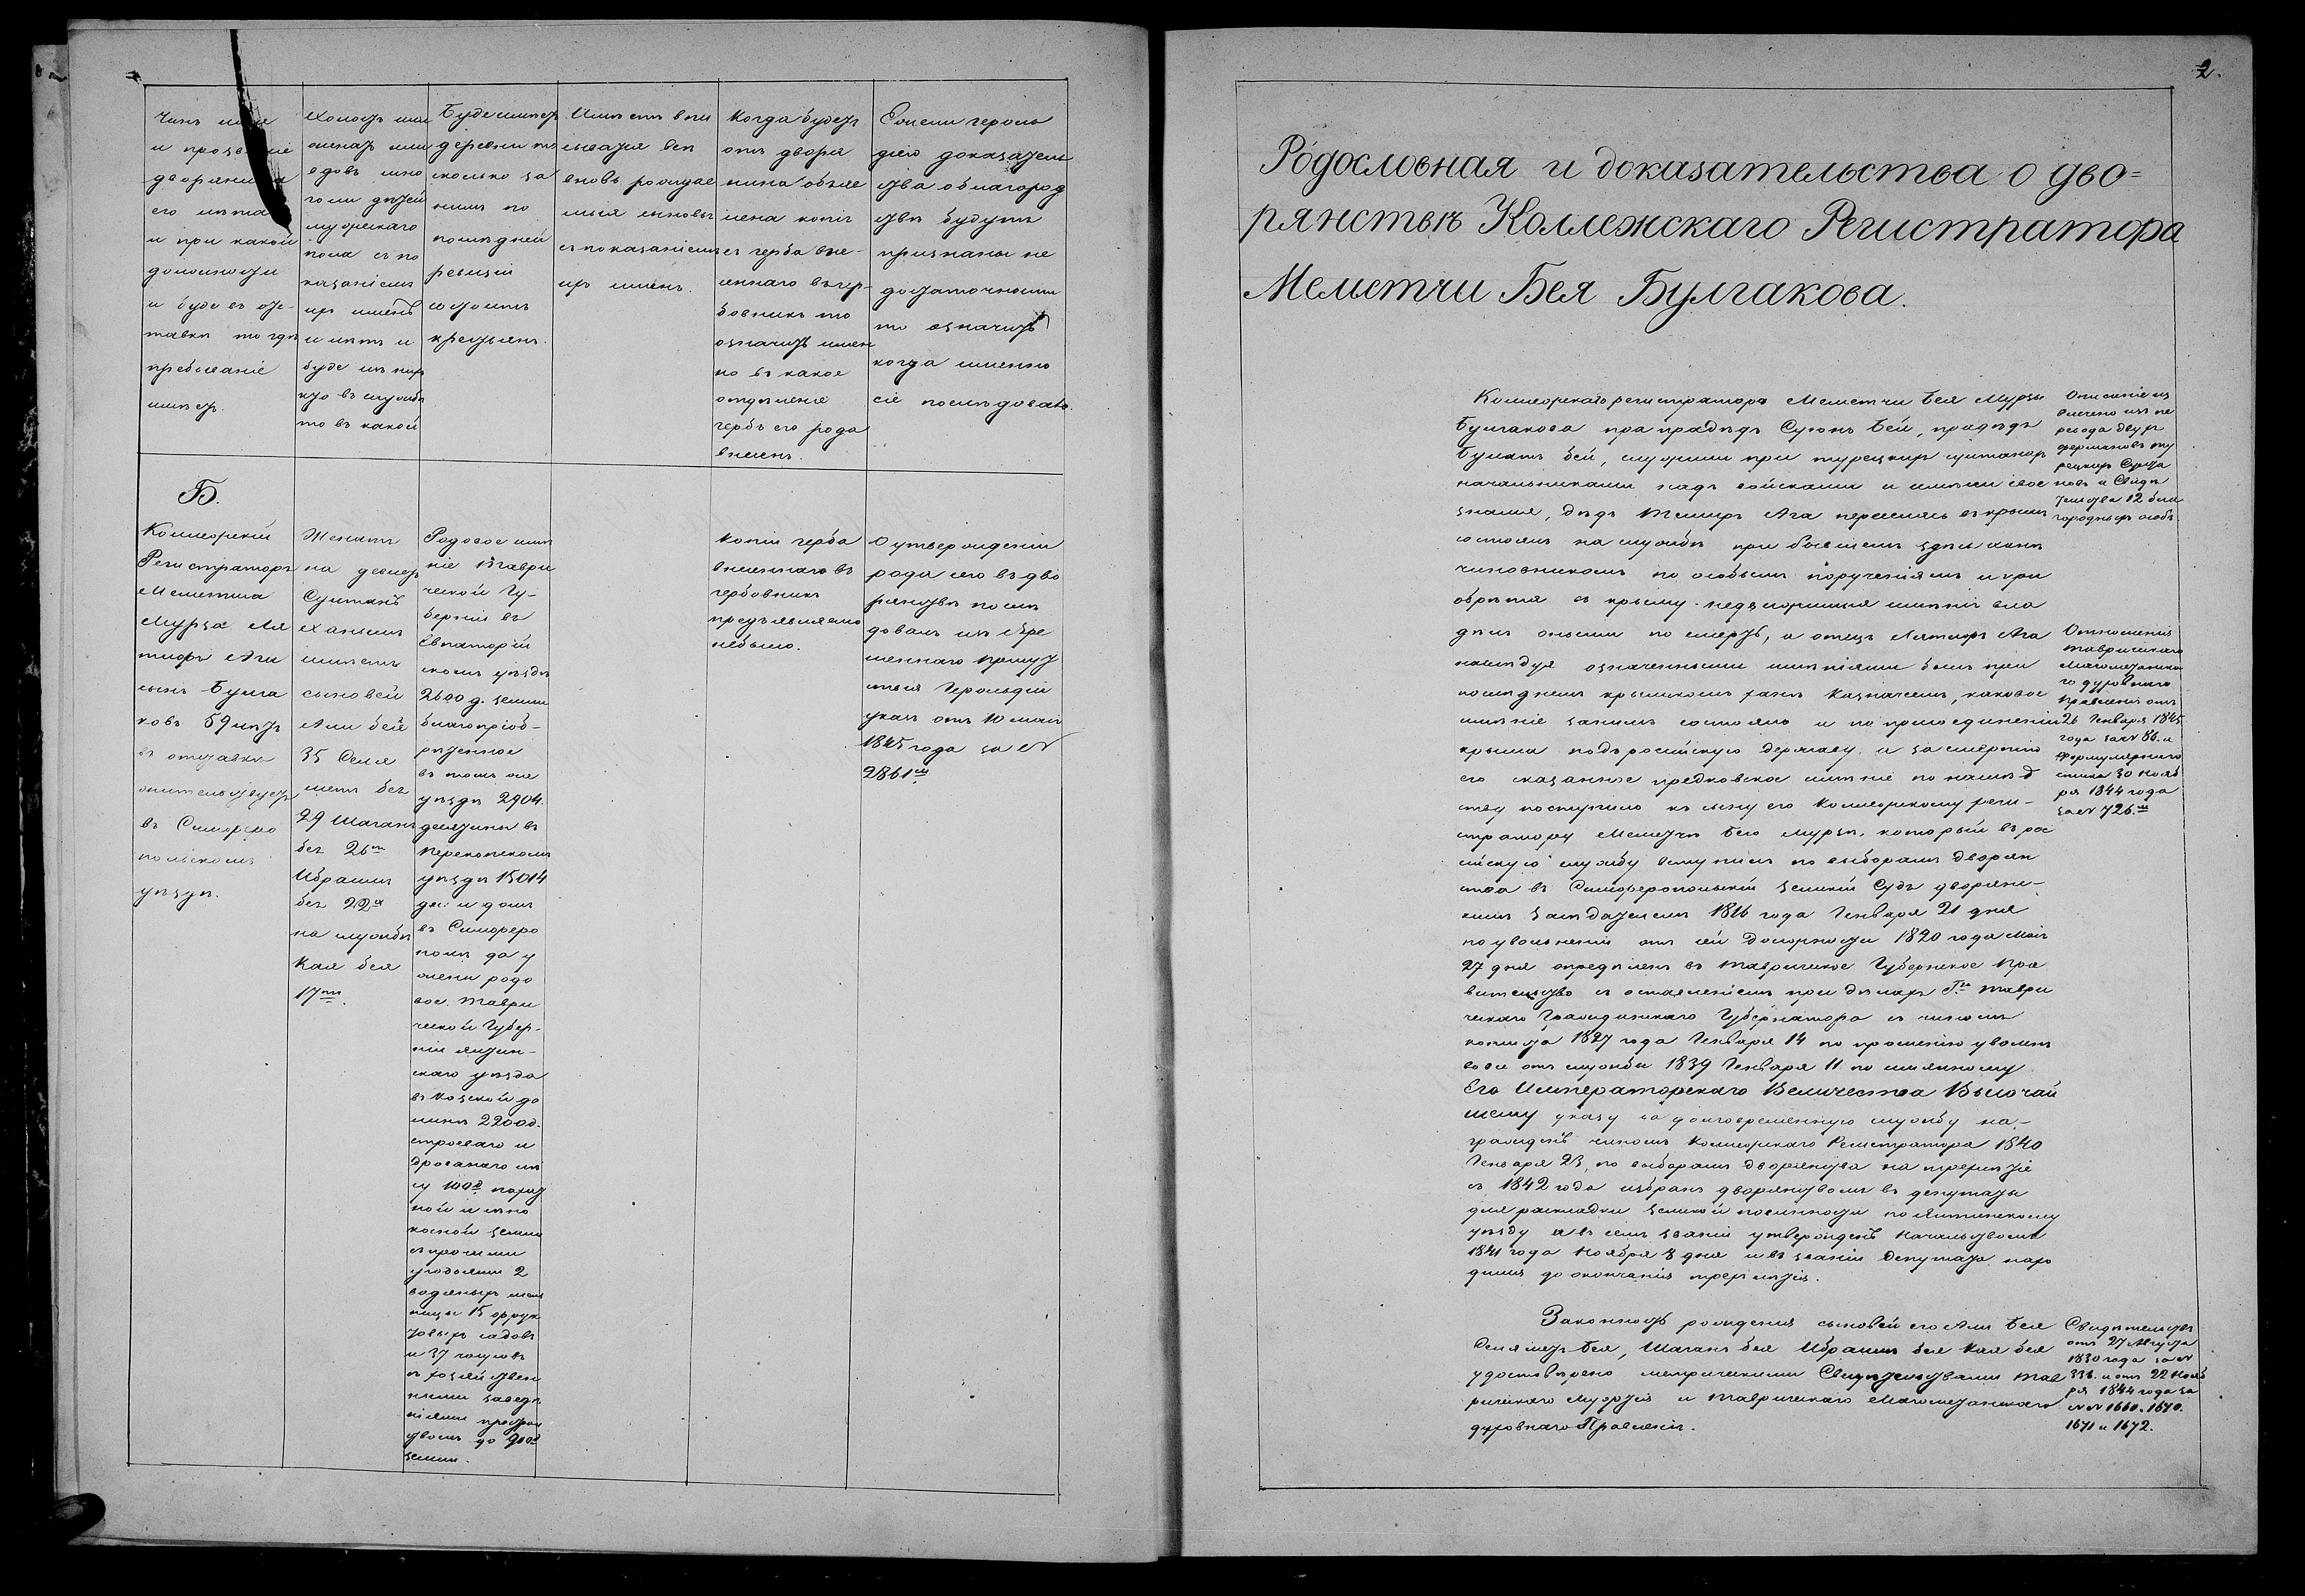 Чинъ имя
и прозваніе
дворянина
его лета
и при какой
должности
и буде въ от-
ставке то где
пребываніе
имеетъ.
Холостъ или
женатъ или
вдовъ мно
голи детей
мужескаго
пола съ по
казаніемъ
ихъ именъ
и летъ и
буде изъ нихъ
кто въ службе
то въ какой
Буде имеетъ
деревни то
сколько за
нимъ по
последней
ревизіи
состоитъ
крестьянъ.
Имеетъ впи
сыватся все
вновь рождае
мыя сыновья
съ показаніемъ
ихъ именъ.
Когда будетъ
отъ дворя
нина объяв
лена копія
съ герба вне-
сеннаго въ гер-
бовникъ то
означить имен
но въ какое
отделеніе
гербъ его рода
внесенъ.
Если героль
діею доказатель
ства о благород
стве будутъ
признаны не
достаточными
то означить
когда именно
сіе последовало.
Б.
Коллежскій
Регистраторъ
Меметша
Мурза Ля
тифъ Аги
сынъ Булга
ковъ 59 летъ
въ отставке
жительствуетъ
въ Симферо
польскомъ
уезде.
Женатъ
на девице
Султанъ
Ханымъ
имеетъ
сыновей
Али бей
35 Селя
метъ бей
29 Шаганъ
бей 26ти
Ибраимъ
бей 22х
на службе
Кая бея
17ти.
Родовое име
ніе Таври
ческой Гу-
берніи въ
Евпаторій
скомъ уезде
2600 д. земли
благопріоб-
ретенное
въ томъ же
уезде 2904
десятины въ
Перекопскомъ
уезде 15014
дес: и домъ
въ Симферо
поле да у
жены родо
вое Таври
ческой Губер-
ніи Ялтин-
скаго уезда
въ Козской до
лине 2200 д.
строеваго и
дровянаго ле
су 100д пахат
ной и сено
косной земли
съ прочими
угодьями 2
водяныхъ мель
ницы 15 фрук
товыхъ садовъ
и 37 чаировъ
съ хозяйствен
ными заведе
ніями простран
ствомъ до 900д
земли.
Копіи герба
внесеннаго въ
гербовникъ
предъявлено
небыло.
О утвержденіи
рода его въ дво
рянстве после
довалъ изъ Вре
меннаго Присут
ствія Герольдіи
указъ отъ 10 мая
1845 года за №
2861м
2.
Родословная и доказательства о дво=
рянстве Коллежскаго Регистратора
Меметчи Бея Булгакова.
Коллежскаго регистратора Меметчи Бея Мурзы
Булгакова прапрадедъ Суюнъ Бей, прадедъ
Булатъ бей, служили при турецкихъ султанахъ
начальниками надъ войсками и имели свое
знамя, дедъ Темиръ Ага переселясь въ крымъ
состоялъ на службе при бывшемъ здесь хане
чиновникомъ по особымъ порученіямъ и прі
обретя въ крыму недвижимыя именія вла
делъ оными по смерть, а отецъ Лятифъ Ага
наследуя означенными именіями былъ при
последнемъ крымскомъ хане Казначеемъ, каковое
именіе за нимъ состояло и по присоединеніи
крыма подъ россійскую державу а за смертію
его сказанное предковское именіе по наслед
ству поступило къ сыну его Коллежскому реги-
стратору Меметчи Бею мурзе, который въ рос
сійскую службу вступилъ по выборамъ Дворян
ства въ Симферопольскій земскій Судъ дворянс-
кимъ Заседателемъ 1816 года Генваря 21 дня
по увольненіи отъ сей Должности 1820 года Мая
27 дня определенъ въ Таврическое Губернское Пра
вительство съ оставленіемъ при делахъ Гна Таври
ческаго Гражданскаго Губернатора съ чиномъ
кописта 1827 года Генваря 14 по прошенію уволенъ
вовсе отъ службы 1839 Генваря 11 по имянному
Его Императорскаго Величества Высочай
шему указу за долговременную службу на-
гражденъ чиномъ Коллежскаго Регистратора 1840
Генваря 23, по выборамъ дворянства на трехлетіе
съ 1842 года избранъ дворянствомъ въ депутаты
для раскладки земской повинности по Ялтинскому
уезду а въ семъ званіи утвержденъ Начальствомъ
1841 года Ноября 8 дня и въ званіи Депутата нахо
дился до окончанія трехлетія.
Законность рожденія сыновей его Али Бея
Селяметъ Бея, Шаганъ бея Ибраимъ бея Кая бея
удостоверено метрическими Свидетельствами Тав
рическаго Муфтія и Таврическаго Магометанскаго
духовнаго Правленія.
Описаніе из
влечено изъ пе
ревода двухъ
фермановъ ту
рецкихъ Султа
новъ и Свиде
тельства 12 бла
городныхъ особъ.
Отношенія
таврическаго
Магометанска
го духовнаго
правленія отъ
26 Генваря 1845
года за № 86. и
Формулярнаго
списка 30 Нояб
ря 1844 года
за № 726.м
Свидетельствъ
отъ 27 Августа
1830 года за №
336. и отъ 22 Нояб
ря 1844 года за
№№ 1660. 1670.
1671 и 1672.